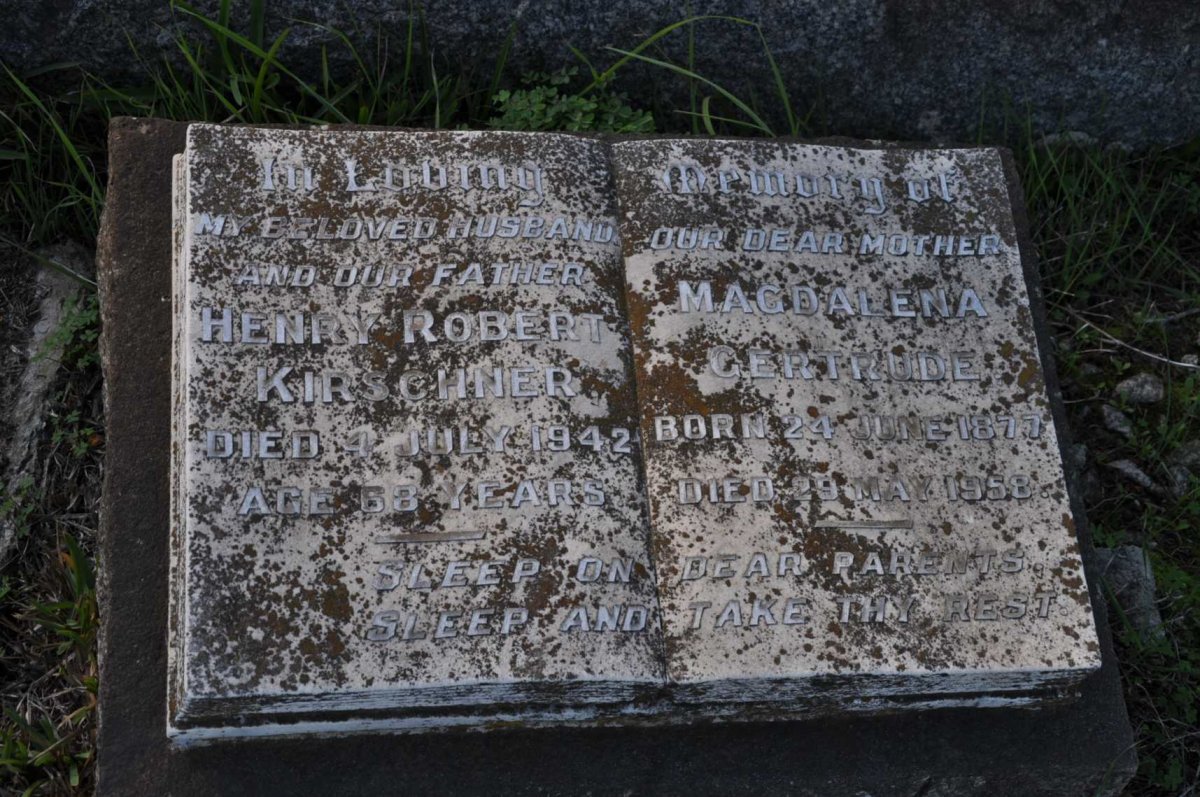 In Loving Memory of
MY BELOVED HUSBAND
AND OUR FATHER
HENRY ROBERT
KIRSCHNER
DIED 4 JULY 1942
AGE 68 YEARS
OUR DEAR MOTHER
MAGDALENA
GERTRUDE
BORN 24 JUNE 1877
DIED 29 MAY 1958.
SLEEP ON DEAR PARENTS.
SLEEP AND TAKE THY REST.